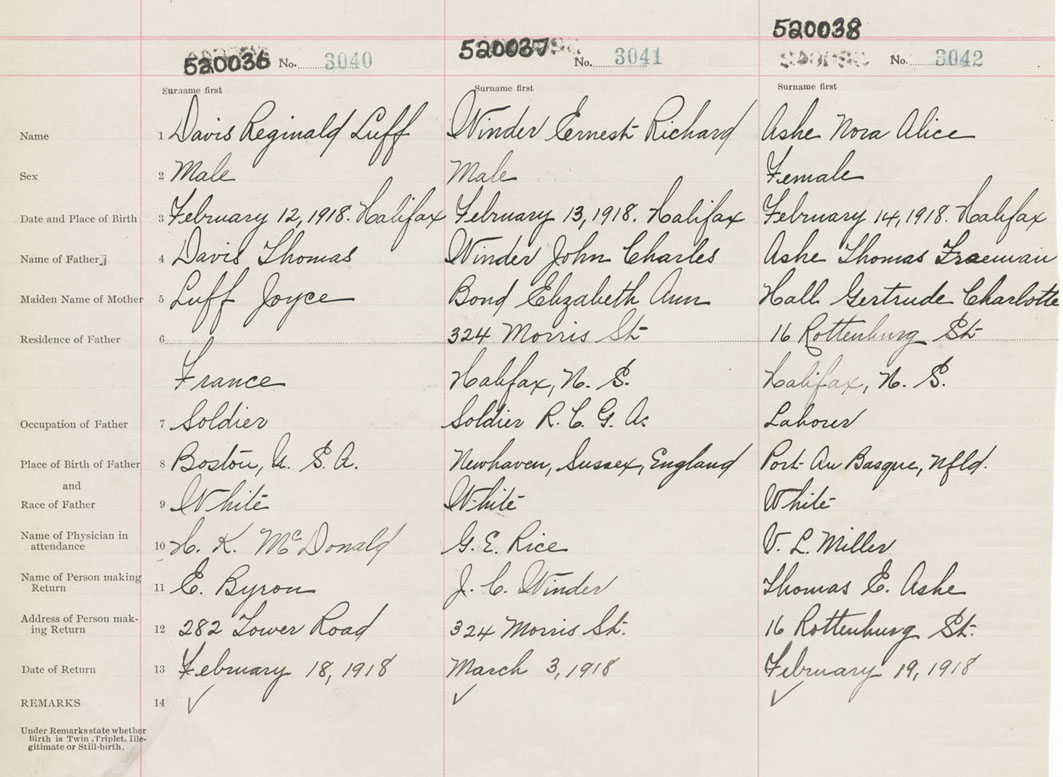 520036 No. 3040 520037 No. 3041 520038 No. 3042
Surname first Surname first Surname first
Name 1 Davis Reginald Luff Winder Ernest Richard Ashe Nora Alice
Sex 2 Male Male Female
Date and Place of Birth 3 February 12, 1918. Halifax February 13, 1918. Halifax February 14, 1918. Halifax
Name of Father 4 Davis Thomas Winder John Charles Ashe Thomas Fraeman
Maiden Name of Mother 5 Luff Joyce Bond Elizabeth Ann Hall Gertrude Charlotte
Residence of Father 6 324 Morris St 16 Rottenburg St
France Halifax, N. S. Halifax, N. S.
Occupation of Father 7 Soldier Soldier R. C. G. A. Labour
Place of Birth of Father 8 Boston, U. S. A. Newhaven, Sussex, England Port Au Basque, Nfld.
and
Race of Father 9 White White White
Name of Physician in
attendance 10 H. K. McDonald G. E. Rice V. L. Miller
Name of Person making
Return 11 E. Byron J. C. Winder Thomas E. Ashe
Address of Person mak-
ing Return 12 282 Tower Road 324 Morris St. 16 Rottenburg St.
Date of Return 13 February 18, 1918 March 3, 1918 February 19, 1918
REMARKS 14 ✓ ✓ ✓
Under Remarks state whether
Birth is Twin, Triplet, Ille-
gitimate or Still-birth.